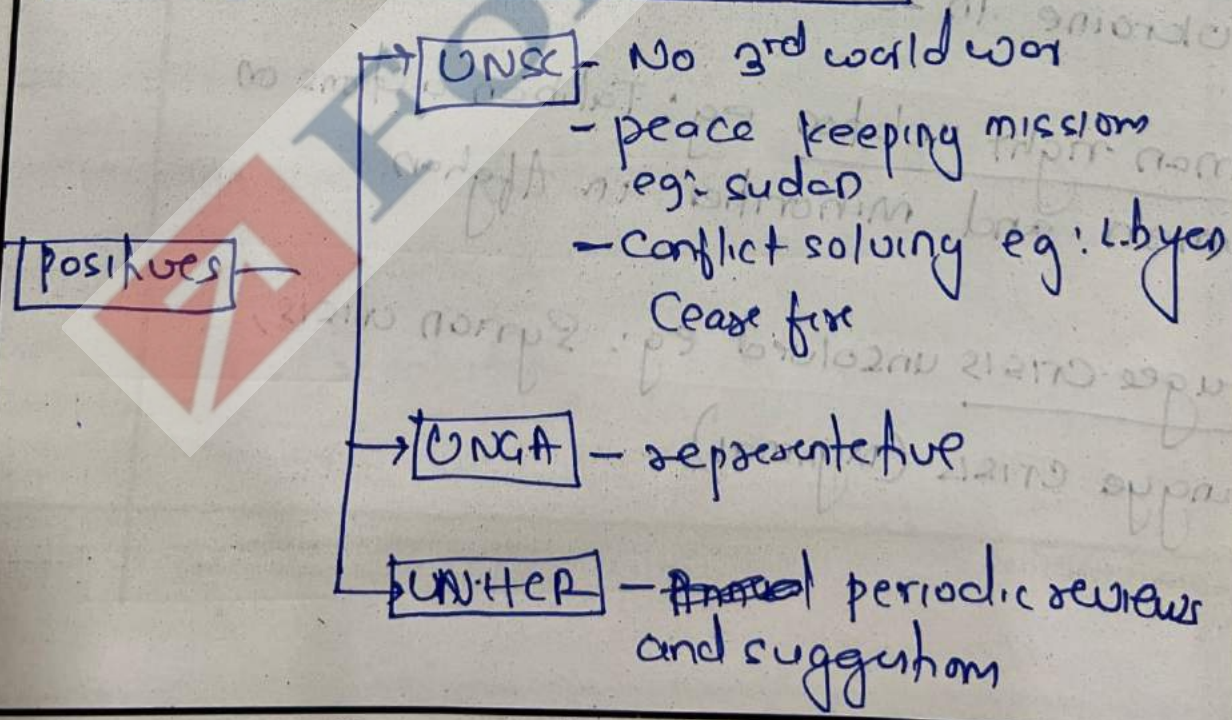 UNSC - No 3rd world war
- peace keeping missions
eg:- sudan
- conflict solving eg: Libyen
Cease fire
Positives -
UNGA - representetive
UN.HCR - periodic reviews
and suggestions